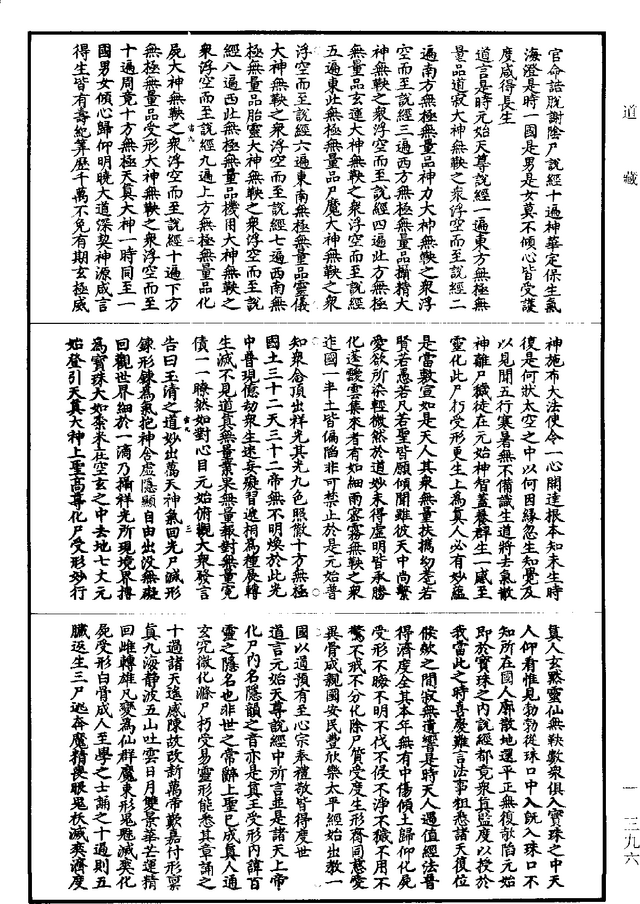 道藏
官命誥既謝陰尸說經十過神華定保生氣
海澄是時一國是男是女莫不傾心皆受護
度咸得長生
道言是時元始天尊說經一遍東方無極無
量品道寂大神無鞅之衆浮空而至說經二
遍南方無極無量品神力大神無鞅之衆浮
空而至說經三遍西方無極無量品撝精大
神無鞅之衆浮空而至說經四遍北方無極
無量品玄運大神無鞅之衆浮空而至說經
五遍東北無極無量品尸魔大神無鞅之衆
浮空而至說經六遍東南無極無量品靈儀
大神無鞅之衆浮空而至說經七遍西南無
極無量品胎靈大神無鞅之衆浮空而至說
經八遍西北無極無量品機用大神無鞅之
衆浮空而至說經九遍上方無極無量品化
屍大神無鞅之衆浮空而至說經十遍下方
無極無量品受形大神無鞅之衆浮空而至
十遍周竟十方無極天真大神一時同至一
國男女傾心歸仰明曉大道深契神源咸言
得生皆有壽紀筭歷千萬不免有期玄極威
神施布大法使令一心開達根本知未生時
復是何狀太空之中以何因緣忽生知覺及
以見聞五行寒暑無不備識生道將去氣散
神離尸穢徒在元始神智蓋養群生一咸至
靈化此尸朽受形更生上為真人必有妙蘊
是當敷宣如是天人其衆無量扶攜幼耄若
賢若愚若凡若聖皆願傾聞雖彼天中尚繫
愛欲所染輕微然於道妙未得虛明皆承勝
化蓬靉雲集來者有如細雨密霧無鞅之衆
迮國一半土皆偏陷非可禁止於是元始普
知衆會頂出祥光其光九色照徹十方無極
國土三十二天三十二帝無不明煥於此光
中普現億劫衆生迷妄癡習遞相為種展轉
生滅不見道真無量業果無量報對無量冤
債一一瞭然如對心目元始俯觀大衆發言
告曰玉清之道妙出萬天神氣回光尸滅形
鍊形鍊為氣抱神舍虛隱顯自由出沒無礙
回觀世界細於一滴乃攝祥光所現境界摶
為寶珠大如黍米在空玄之中去地七丈元
始登引天真大神上聖高尊化尸受形妙行
真人玄黙靈仙無鞅數衆俱入寶珠之中天
人仰看惟見勃勃從珠口中入既入珠口不
知所在國人廓散地還平正無復欹陷元始
即於寶珠之內說經都竟衆真監度以授於
我當此之時喜慶難言法事粗悉諸天復位
倏欻之間寂無遺響是時天人遇值經法普
得濟度全其本年無有中傷傾土歸仰化屍
受形不瞭不明不伐不侵不淨不穢不用不
驚不戒不分化除尸質受度生形齋同慈愛
異骨成親國安民豐欣樂太平經始出教一
國以道預有至心宗奉禮敬皆得度世
道言元始天尊說經中所言並是諸天上帝
化尸內名隱韻之音亦是真王受形內諱百
靈之隱名也非世之常辭上聖已成真人通
玄究微化滌尸朽受易靈形能悉其章誦之
十過諸天遙咸陳故改新萬帝歎嘉付形稟
真九海靜波五山吐雲日月雙景華芒運精
回雌轉雄凡變為仙群魔束形鬼魅滅爽化
屍受形白骨成人至學之士誦之十過則五
臟返生三尸迯奔魔精喪眼鬼袄滅爽濟度
一 三九六